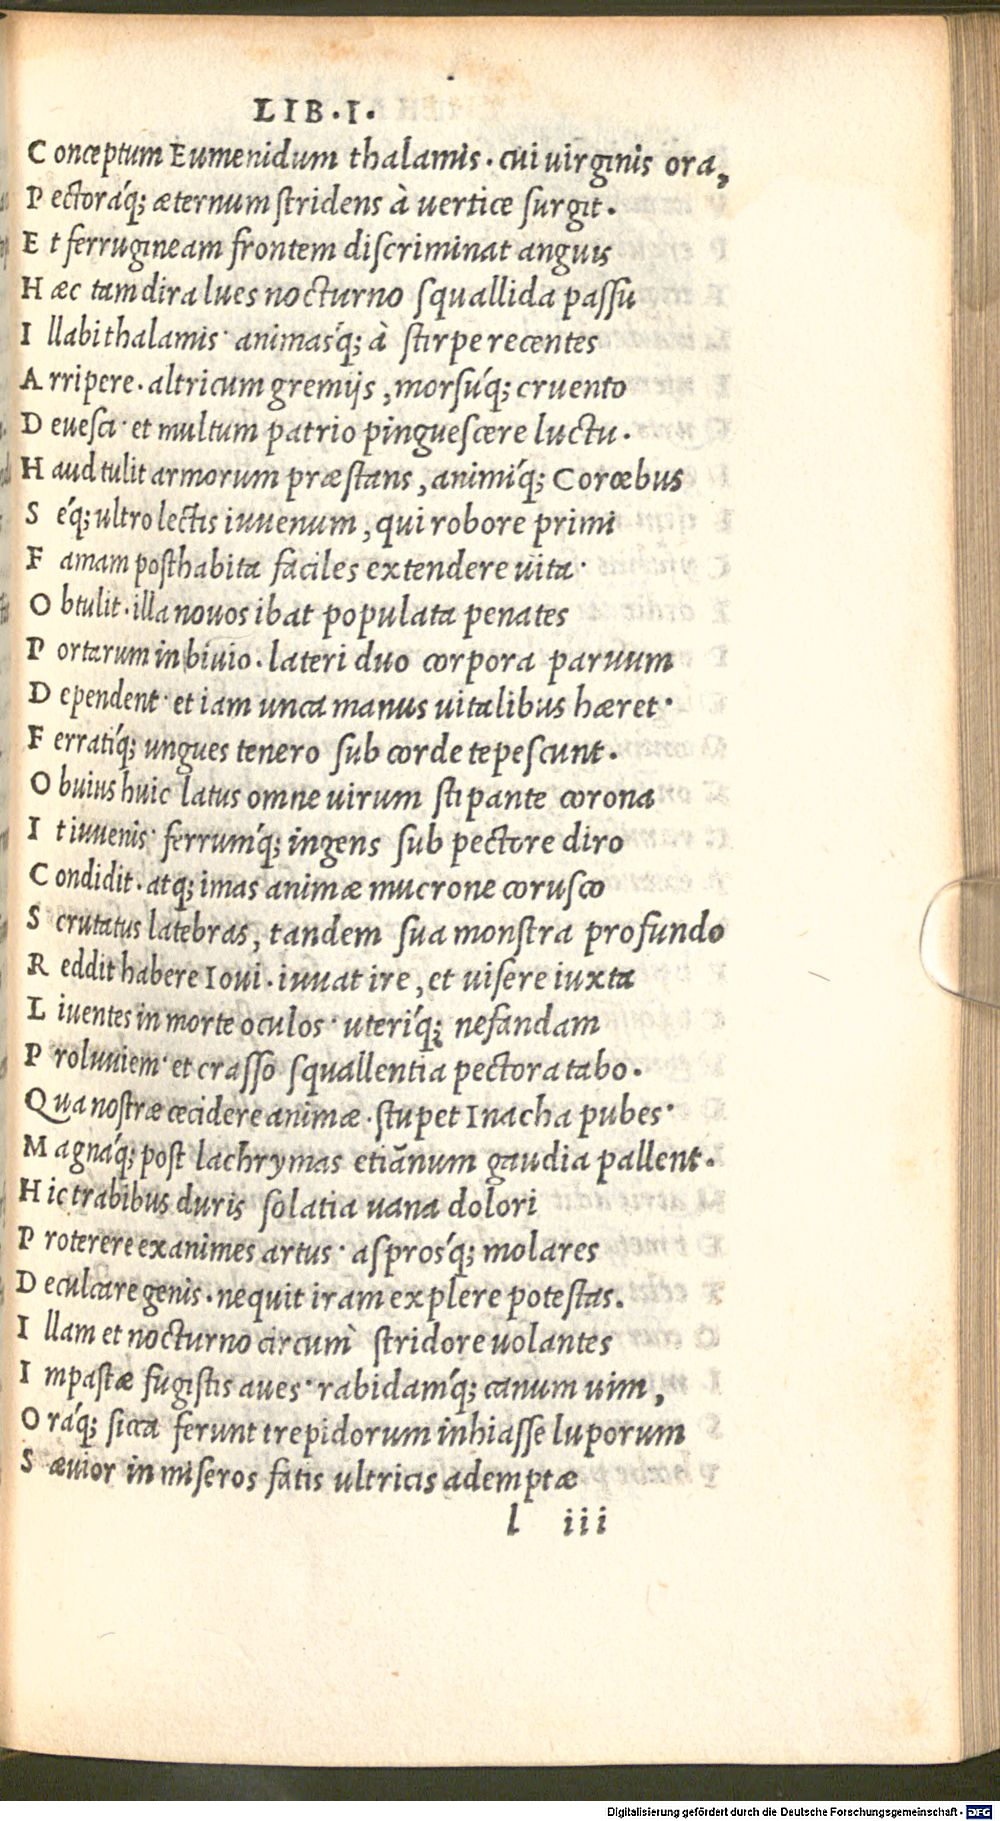 LIB.I.
Conceptum Eumenidum thalamis. cui uirginis ora,
Pectoráq; æternum stridens à uertice surgit.
Et ferrugineam frontem discriminat anguis
Hæc tam dira lues nocturno squallida passu
Illabi thalamis· animasq́; à stirpe recentes
Arripere. altricum gremijs, morsuq́; cruento
Deuesci· et multum patrio pinguescere luctu.
Haud tulit armorum præstans, animiq́; Corœbus
Seq́; ultro lectis iuuenum, qui robore primi
Famam posthabita faciles extendere uita·
Obtulit. illa nouos ibat populata penates
Portarum in biuio. lateri duo corpora paruum
Dependent· et iam unca manus uitalibus hæret·
Ferratiq́; ungues tenero sub corde tepescunt.
Obuius huic latus omne uirum stipante corona
It iuuenis· ferrumq́; ingens sub pectore diro
Condidit. atq; imas animæ mucrone corusco
Scrutatus latebras, tandem sua monstra profundo
Reddit habere Ioui. iuuat ire, et uisere iuxta
Liuentes in morte oculos· uteriq́; nefandam
Proluuiem· et crasso squallentia pectora tabo.
Qua nostræ cecidere animæ. stupet Inacha pubes·
Magnaq́; post lachrymas etiãnum gaudia pallent.
Hic trabibus duris solatia uana dolori
Proterere exanimes artus· asprosq́; molares
Deculcare genis. nequit iram explere potestas.
Illam et nocturno circum stridore uolantes
Impastæ fugistis aues· rabidamq́; canum uim,
Oraq́; sicca ferunt trepidorum inhiasse luporum
Sæuior in miseros fatis ultricis ademptæ
l iii
Digitalisierung gefördert durch die Deutsche Forschungsgemeinschaft - DFG